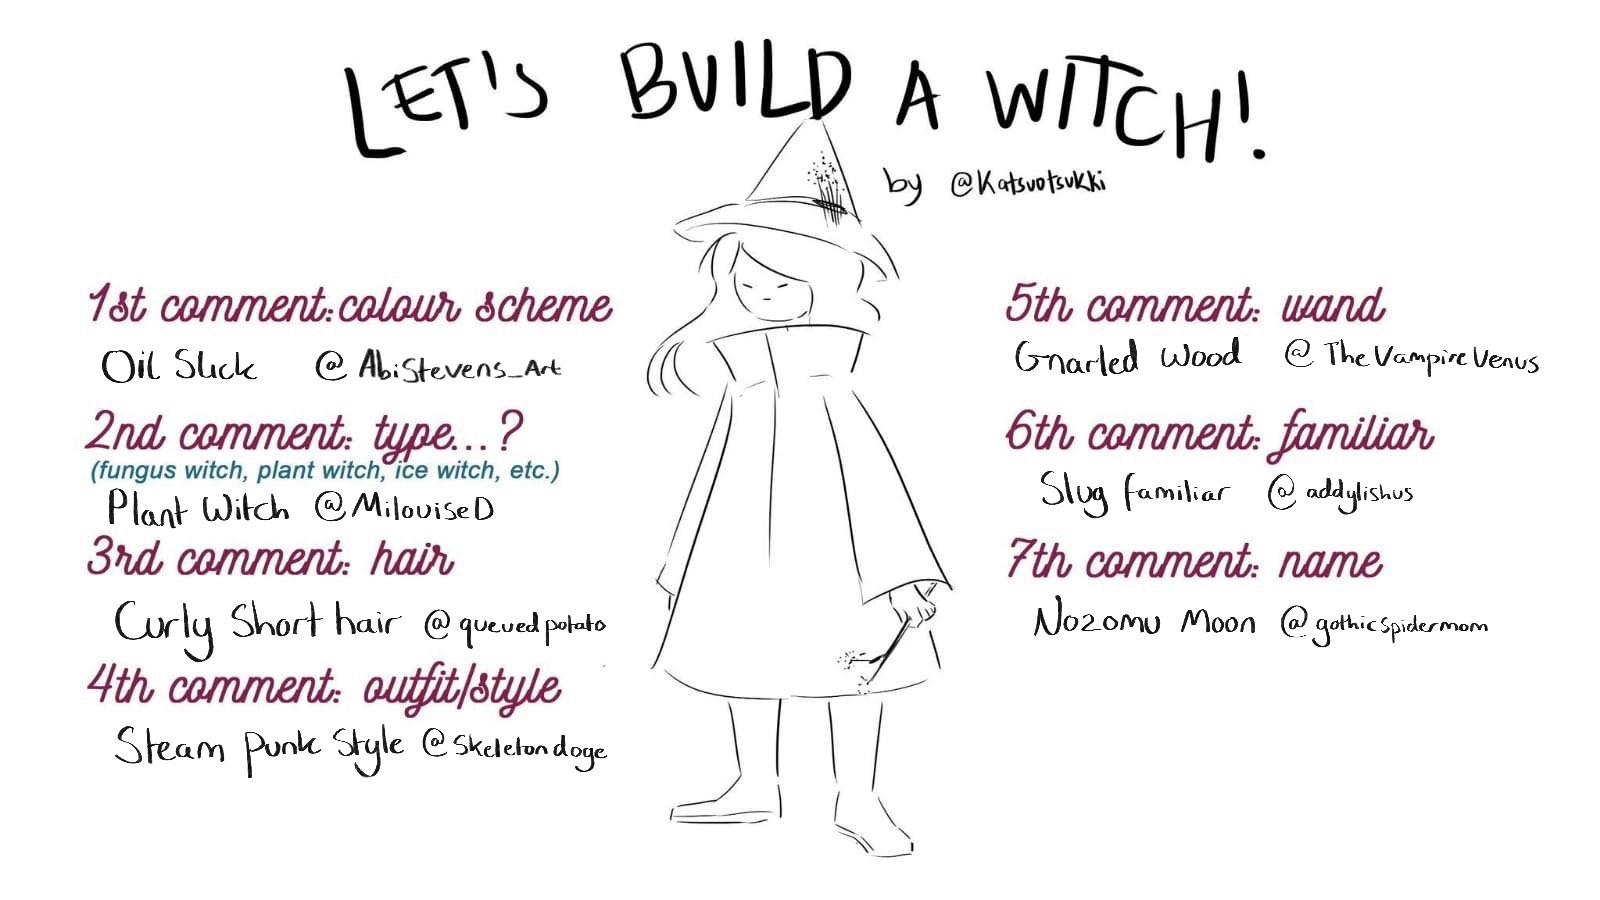 LET'S BUILD A WITCH!
by @Katsuotsukki
1st comment: colour scheme
Oil Slick @AbiStevens_Art
2nd comment: type...?
(fungus witch, plant witch, ice witch, etc.)
Plant Witch @MilouiseD
3rd comment: hair
Curly Short hair @queuedpotato
4th comment: outfit/style
Steam Punk Style @Skeletondoge
5th comment: wand
Gnarled Wood @TheVampireVenus
6th comment: familiar
Slug familiar @addylishus
7th comment: name
Nozomu Moon @gothicspidermom